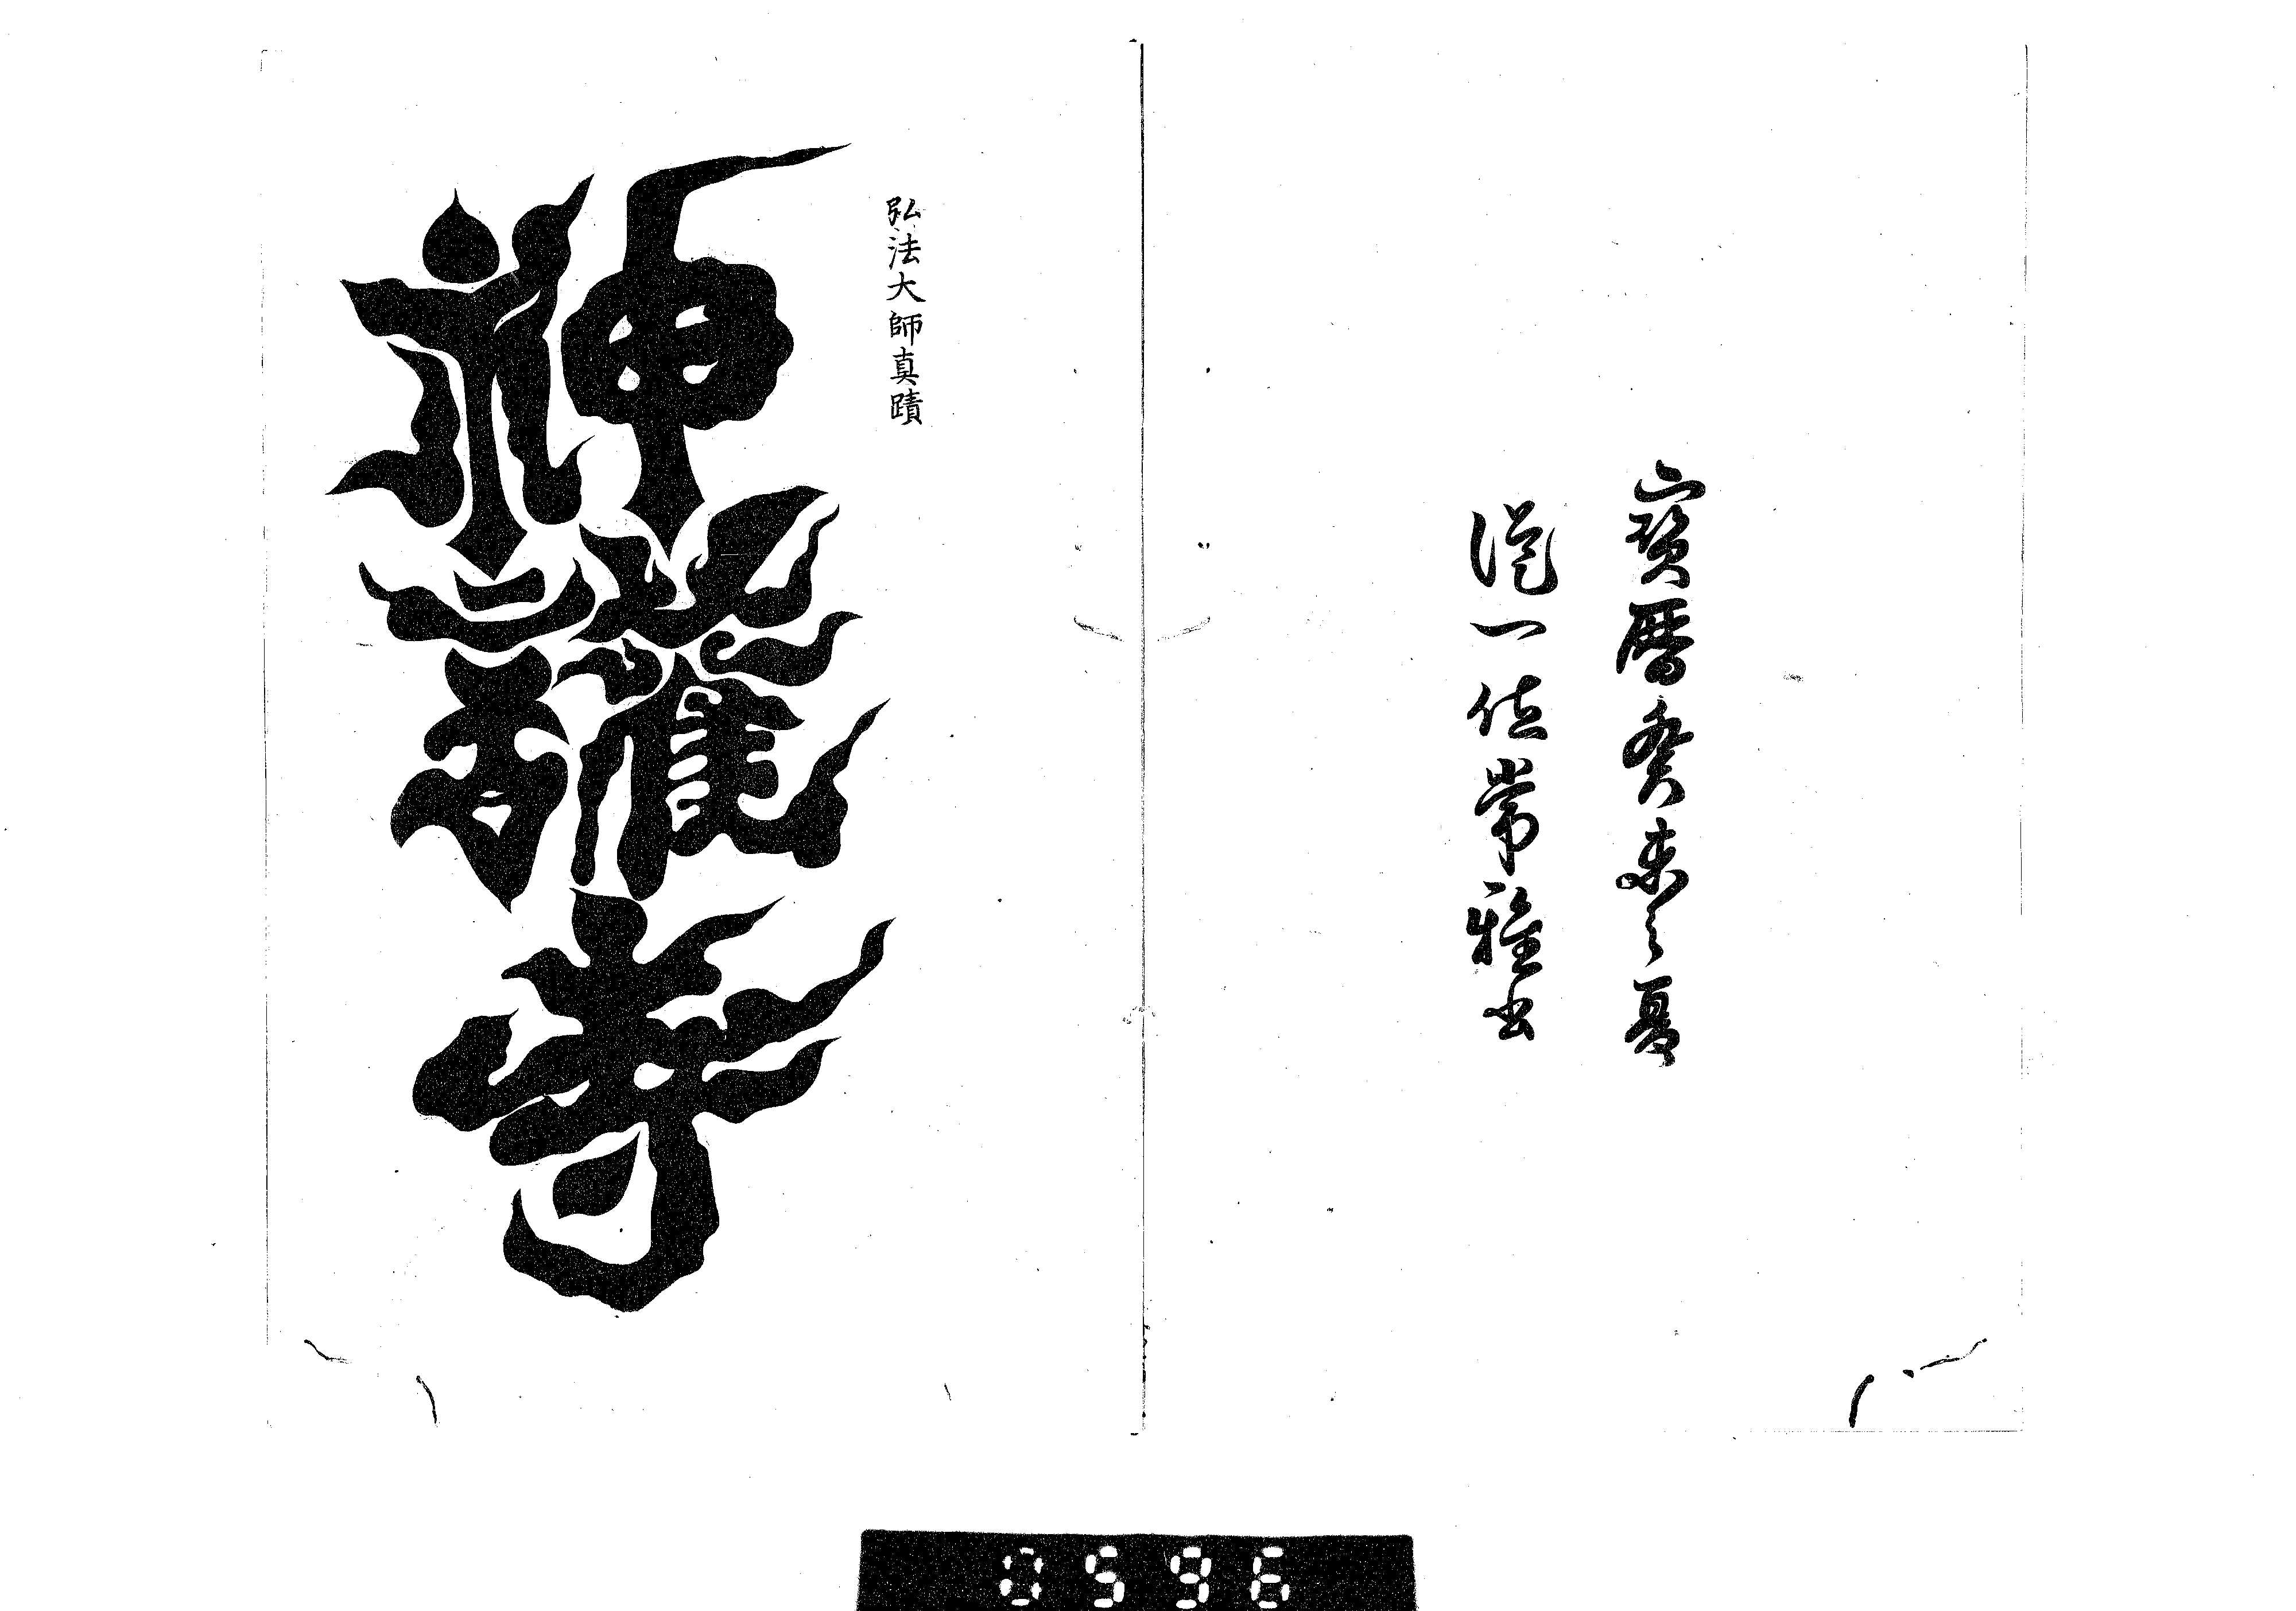 寶暦癸未之夏
従一位常雅書
弘法大師真蹟
神護寺
0596